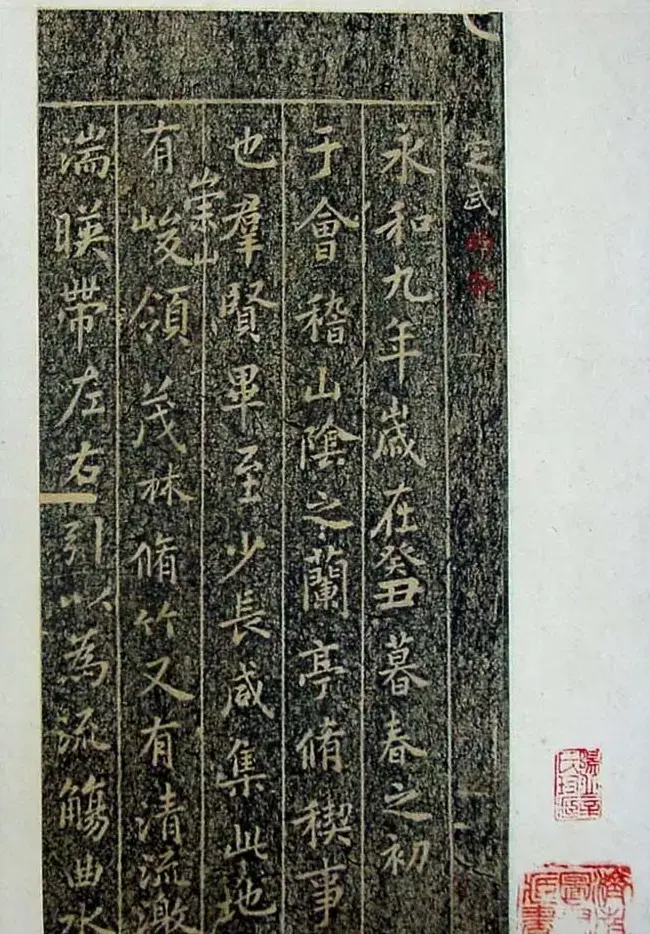 定武
永和九年歲在癸丑暮春之初
于會稽山陰之蘭亭脩稧事
也羣賢畢至少長咸集此地
有崇山峻領茂林脩竹又有清流激
湍暎帶左右引以為流觴曲水